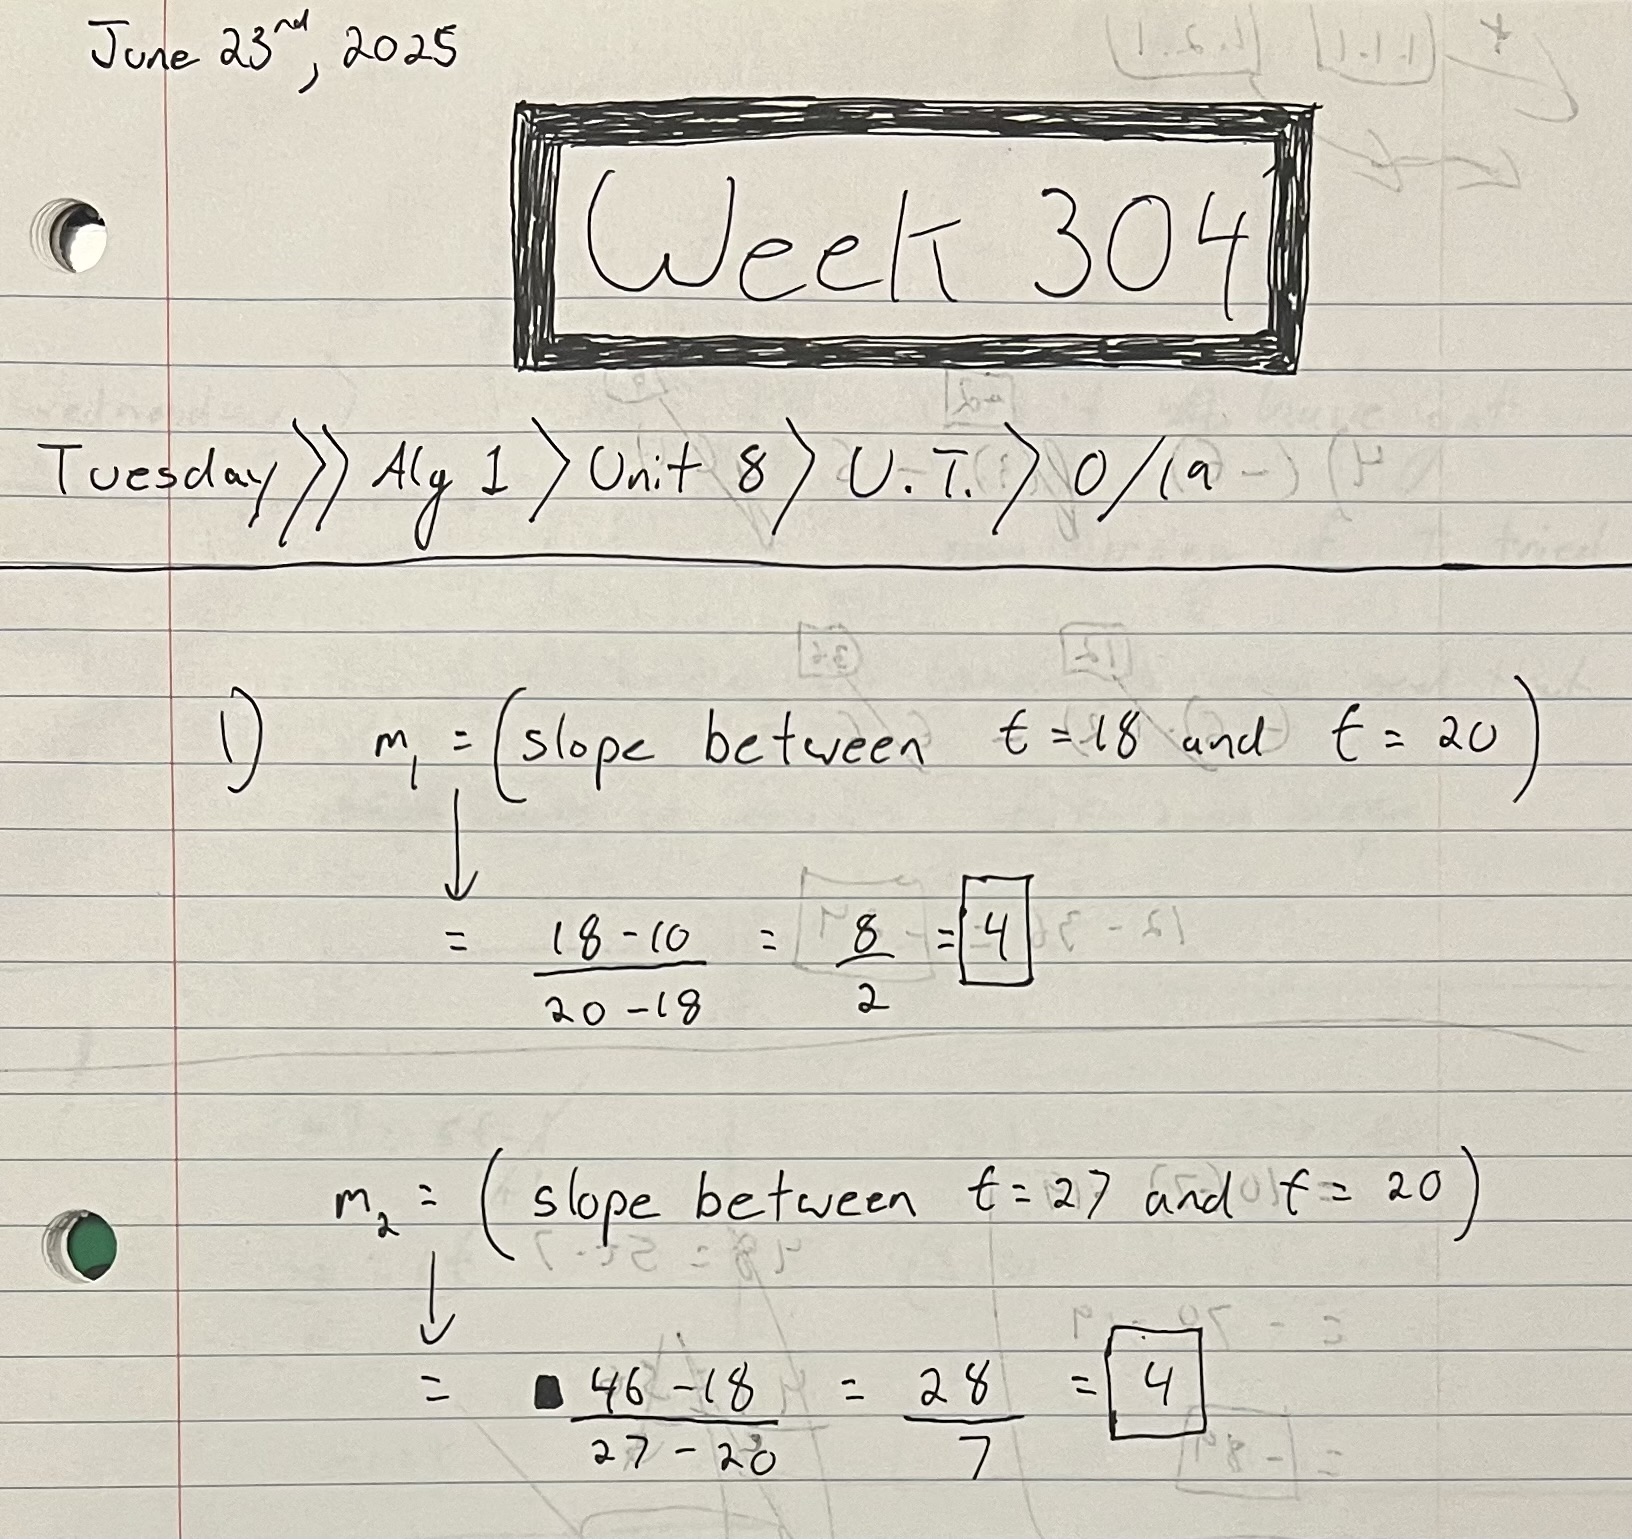 June 23rd, 2025
Week 304
Tuesday >> Alg 1 > Unit 8 > U.T. > 0/19
1) m₁ = (slope between t = 18 and t = 20)
↓
= (18 - 10)/(20 - 18) = 8/2 = 4
m₂ = (slope between t = 27 and t = 20)
↓
= (46 - 18)/(27 - 20) = 28/7 = 4